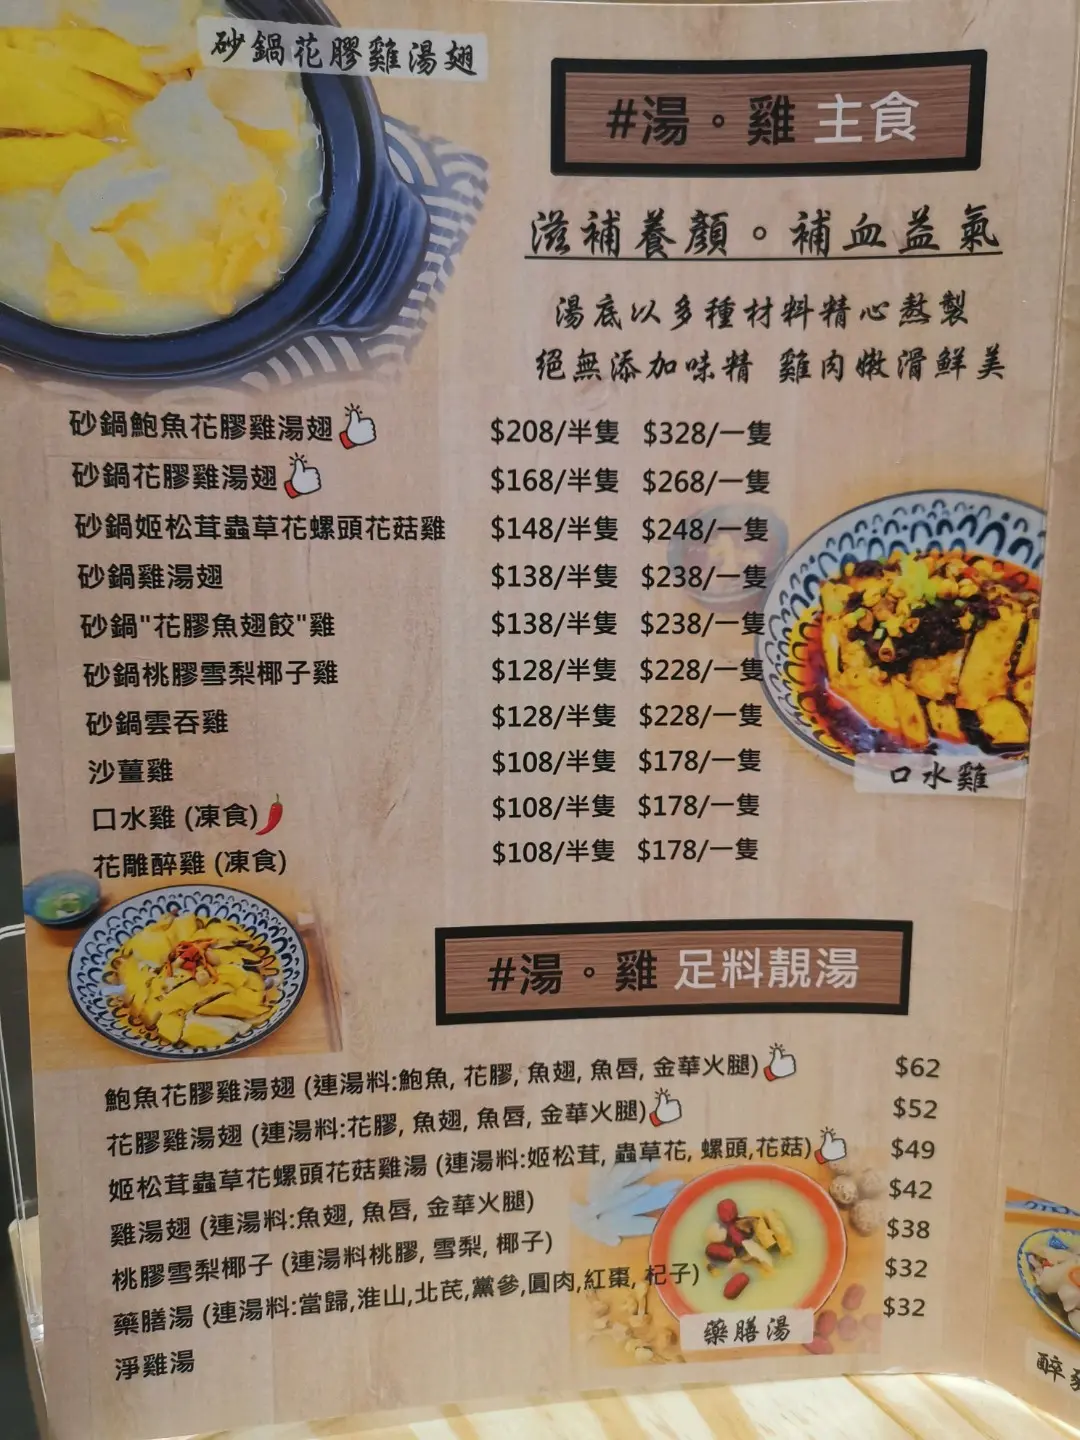 砂鍋花膠雞湯翅
#湯。雞 主食
滋補養顏。補血益氣
湯底以多種材料精心熬製
絕無添加味精 雞肉嫩滑鮮美
砂鍋鮑魚花膠雞湯翅 $208/半隻 $328/一隻
砂鍋花膠雞湯翅 $168/半隻 $268/一隻
砂鍋姬松茸蟲草花螺頭花菇雞 $148/半隻 $248/一隻
砂鍋雞湯翅 $138/半隻 $238/一隻
砂鍋"花膠魚翅餃"雞 $138/半隻 $238/一隻
砂鍋桃膠雪梨椰子雞 $128/半隻 $228/一隻
砂鍋雲吞雞 $128/半隻 $228/一隻
沙薑雞 $108/半隻 $178/一隻
口水雞 (凍食) $108/半隻 $178/一隻
花雕醉雞 (凍食) $108/半隻 $178/一隻
口水雞
#湯。雞 足料靚湯
鮑魚花膠雞湯翅 (連湯料:鮑魚, 花膠, 魚翅, 魚唇, 金華火腿) $62
花膠雞湯翅 (連湯料:花膠, 魚翅, 魚唇, 金華火腿) $52
姬松茸蟲草花螺頭花菇雞湯 (連湯料:姬松茸, 蟲草花, 螺頭,花菇) $49
雞湯翅 (連湯料:魚翅, 魚唇, 金華火腿) $42
桃膠雪梨椰子 (連湯料桃膠, 雪梨, 椰子) $38
藥膳湯 (連湯料:當歸,淮山,北芪,黨參,圓肉,紅棗, 杞子) $32
淨雞湯 $32
藥膳湯
醉